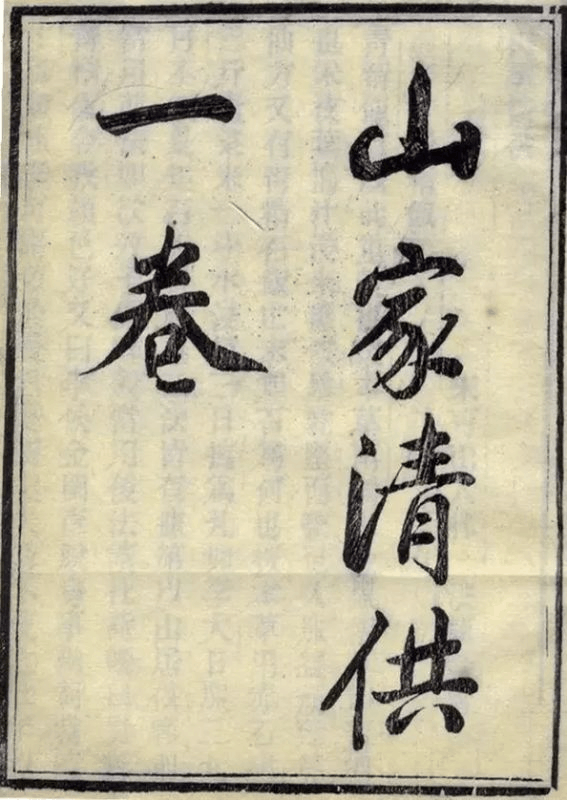 山家清供
一卷